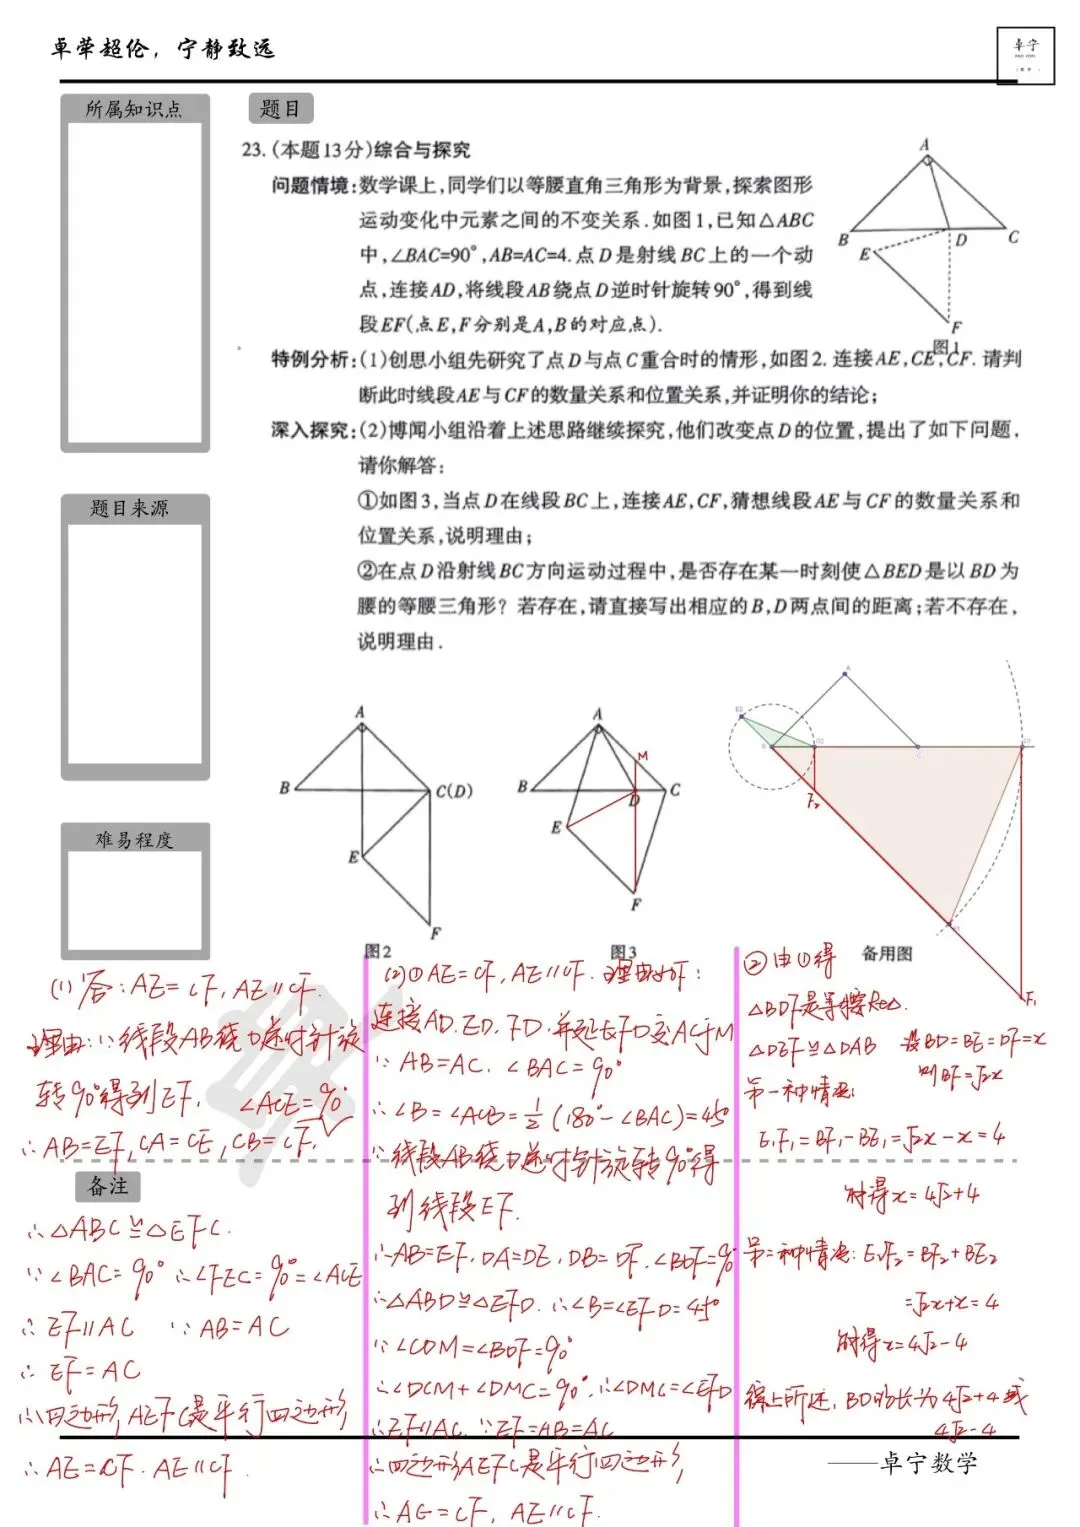 卓荦超伦，宁静致远
卓宁
所属知识点
题目
23.(本题13分)综合与探究
问题情境:数学课上,同学们以等腰直角三角形为背景,探索图形
运动变化中元素之间的不变关系.如图1,已知△ABC
中,∠BAC=90°,AB=AC=4.点D是射线BC上的一个动
点,连接AD,将线段AB绕点D逆时针旋转90°,得到线
段EF(点E,F分别是A,B的对应点).
A
B
D
C
E
F
图1
特例分析:(1)创思小组先研究了点D与点C重合时的情形,如图2.连接AE,CE,CF.请判
断此时线段AE与CF的数量关系和位置关系,并证明你的结论;
深入探究:(2)博闻小组沿着上述思路继续探究,他们改变点D的位置,提出了如下问题,
请你解答:
①如图3,当点D在线段BC上,连接AE,CF,猜想线段AE与CF的数量关系和
位置关系,说明理由;
②在点D沿射线BC方向运动过程中,是否存在某一时刻使△BED是以BD为
腰的等腰三角形?若存在,请直接写出相应的B,D两点间的距离;若不存在,
说明理由.
题目来源
难易程度
A
B
C(D)
E
F
图2
A
M
B
D
C
E
F
图3
A
E2
B
D2
C
D1
F2
E1
F1
备用图
(1)答:AE=CF,AE∥CF.
理由:∵线段AB绕D逆时针旋
转90°得到EF. ∠ACE=90°
∴AB=EF,CA=CE,CB=CF.
备注
∴△ABC≌△EFC.
∵∠BAC=90° ∴∠FEC=90°=∠ACE
∴EF∥AC ∵AB=AC
∴EF=AC
∴四边形AEFC是平行四边形,
∴AE=CF.AE∥CF.
(2)①AE=CF,AE∥CF.理由如下:
连接AD.ED.FD.并延长FD交AC于M
∵AB=AC.∠BAC=90°
∴∠B=∠ACB=1/2(180°-∠BAC)=45°
∵线段AB绕D逆时针旋转90°得
到线段EF.
∴AB=EF,DA=DE,DB=DF,∠BDF=90°
∴△ABD≌△EFD.∴∠B=∠EFD=45°
∵∠CDM=∠BDF=90°
∴∠DCM+∠DMC=90°∴∠DMC=∠EFD
∴EF∥AC.∵EF=AB=AC
∴四边形AEFC是平行四边形,
∴AE=CF,AE∥CF.
②由①得
△BDF是等腰Rt△.
△DEF≌△DAB 设BD=BE=DF=x
则BF=√2x
第一种情况:
E1F1=BF1-BE1=√2x-x=4
解得x=4√2+4
第二种情况:E2F2=BF2+BE2
=√2x+x=4
解得x=4√2-4
综上所述,BD的长为4√2+4或
4√2-4
——卓宁数学